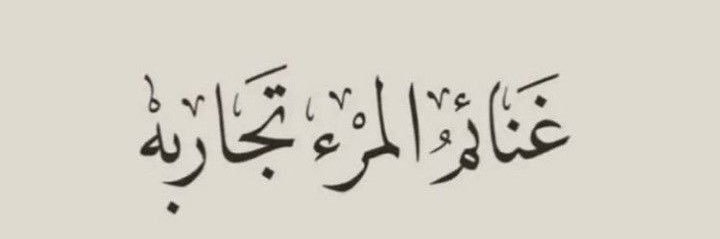 غَنَائِمُ المرْءِ تَجَاربهْ